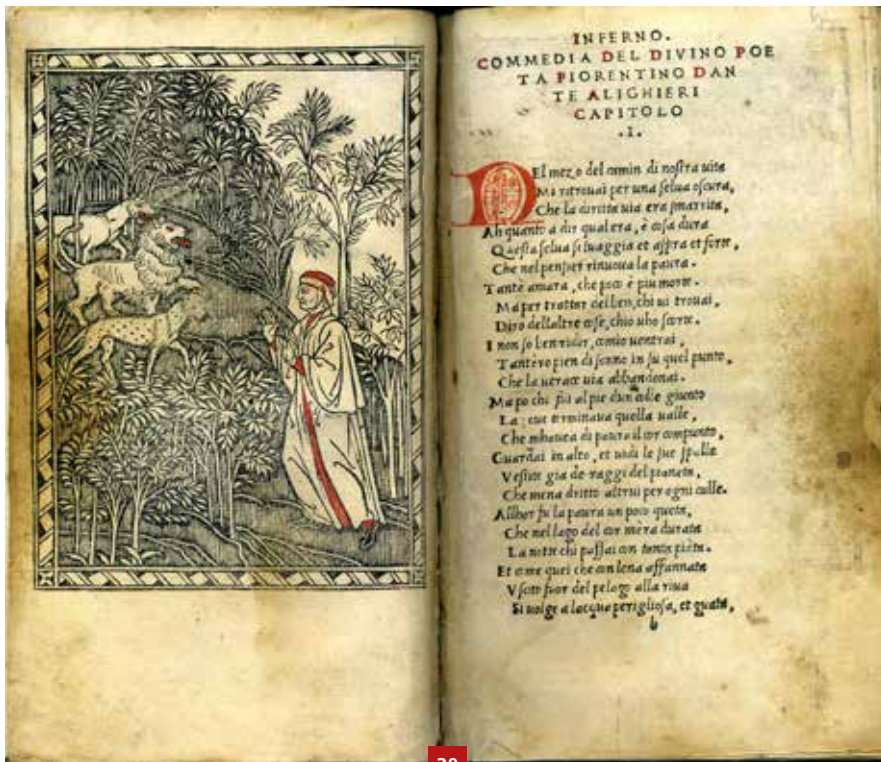 INFERNO.
COMMEDIA DEL DIVINO POE
TA FIORENTINO DAN
TE ALIGHIERI
CAPITOLO
.I.
NEl mezo del camin di nostra uita
Mi ritrouai per una selua oscura,
Che la diritta uia era smarrita,
Ah quanto a dir qual era, è cosa dura
Questa selua seluaggia et aspra et forte,
Che nel pensier rinuoua la paura.
Tant'è amara, che poco è piu morte.
Ma per trattar del ben, ch'i ui trouai,
Diro dell'altre cose, ch'io u'ho scorte.
I non so ben ridir, com'io u'entrai,
Tant'ero pien di sonno in su quel punto,
Che la uerace uia abbandonai.
Ma po ch'i fui al pie d'un colle giunto
La, oue terminaua quella ualle,
Che m'hauea di paura il cor compunto,
Guardai in alto, et uidi le sue spalle
Vestite gia de raggi del pianeta,
Che mena dritto altrui per ogni calle.
Allhor fu la paura un poco queta,
Che nel lago del cor m'era durata
La notte ch'i passai con tanta pièta.
Et come quei che con lena affannata
Vscito fuor del pelago alla riua
Si uolge a l'acqua perigliosa, et guata,
b